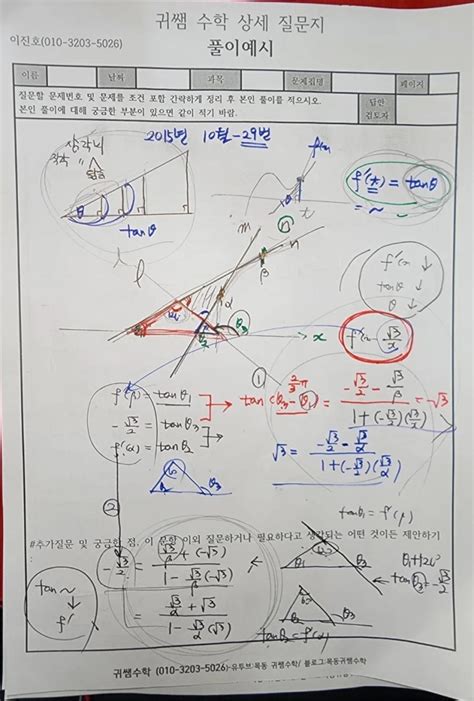 귀쌤 수학 상세 질문지
이진호(010-3203-5026)
풀이예시
이름 날짜 과목 문제집명 페이지
질문할 문제번호 및 문제를 조건 포함 간략하게 정리 후 본인 풀이를 적으시오.
본인 풀이에 대해 궁금한 부분이 있으면 같이 적기 바람.
답안
검토자
삼각비
2015년 10월-29번
닮음
tanθ
f'(t) = tanθ
= ~
t
m
n
l
β
α
θ₂
θ₃
x
f'(x) ↓
tanθ ↓
θ ↓
f'(x) = √3/x
①
f'(β) = tanθ₁
-√3/2 = tanθ₃
f'(α) = tanθ₂
tan(θ₃-θ₁) = (-√3/2 - √3/β)/(1+(-√3/2)(√3/β)) = -√3
2/3π
√3 = (-√3/2 - √3/α)/(1+(-√3/2)(√3/α))
②
tanθ₁ = f'(β)
#추가질문 및 궁금한 점, 이 문항 이외 질문하거나 필요하다고 생각되는 어떤 것이든 제안하기
-√3/2 = (√3/β + (-√3))/(1 - √3/β(-√3))
= (√3/α + √3)/(1 - √3/α(√3))
tan ~
↓
f'
θ₁ θ₂
θ₁+120°
tanθ₃ = -√3/2
θ₃
tanθ₂ = f'(α)
귀쌤수학 (010-3203-5026)-유투브:목동 귀쌤수학/ 블로그:목동귀쌤수학